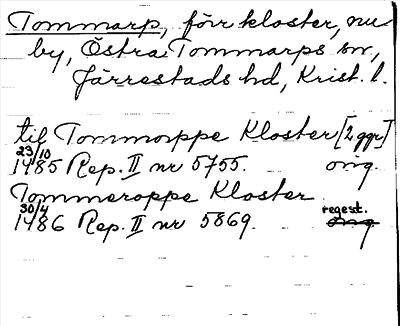 Tommarp, förr kloster, nu
by, Östra Tommarps sn,
Järrestads hd, Krist. l.
til Tommorppe Kloster [2 ggr]
23/10
1485 Rep. II nr 5755. orig.
Tommeroppe Kloster
30/4 regest.
1486 Rep. II nr 5869. orig